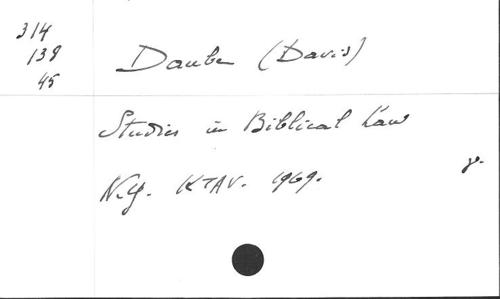 314
139
45
Daube (Davis)
Studies in Biblical Law
N.Y. KTAV. 1969.